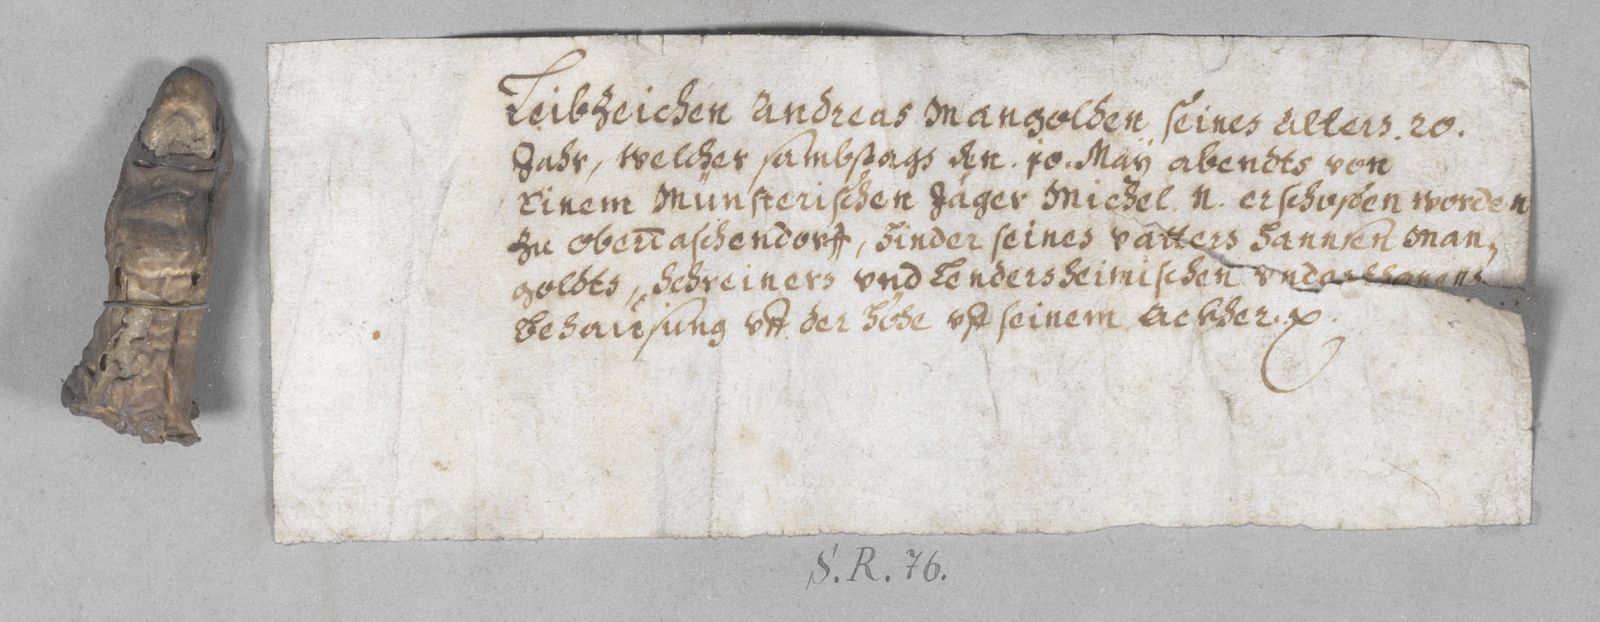 Leibzeichen Andreas Mangolden seines Alters 20.
Jahr, welcher sambstags den 10. Maÿ abendts von
einem Münsterischen Jäger Michel N. erschoßen worden
zu obertaschendorff, hinder seines vatters Hannsen Man,
goldts, Schreiners vnd Lendersheimischen vnderthanens
behausung vff der höhe vff seinem Ackher.
S. R. 76.